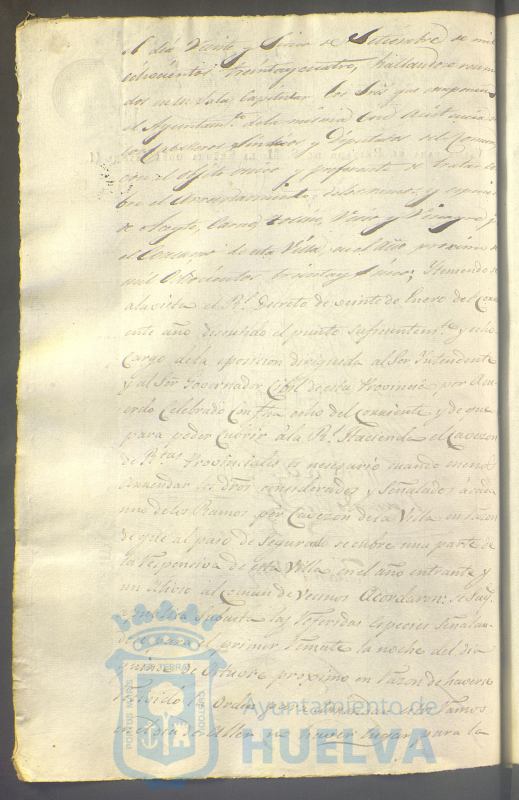 el dia Veinte y Cinco de Setiembre de mil
ochocientos treinta y cuatro, hallandose reuni
dos en su Sala Capitular los Sres. que componen
el Ayuntam.to de la misma con asistencia de
los Caballeros Sindicos y Diputados del Comun,
con el objeto unico y preferente de tratar so
bre el Arrendamiento de los ramos y especies
de Aceyte, Carne, Vino y Vinagre p.a
el Consumo de esta Villa, en el Año proximo de
mil Ochocientos treinta y Cinco; Y teniendo
a la vista el R.l Decreto de veinte de Enero del Corri
ente año, discutido el punto suficientem.te y echo
Cargo de la esposicion dirigida al Sor Yntendente
y al Sor Governador Cibil de esta Provincia por Acu
erdo Celebrado Con fha ocho del Corriente y de que
para poder Cubrir a la R.l Hacienda el Cavezon
de R.tas Provinciales es necesario cuando menos
arrendar los dros considerados y Señalados a cada
uno de los Ramos por Cavezon de esta Villa en razon
de que al paso de Segurar se cubre una parte de
la responsiva de esta Villa en el año entrante y
un alivio al Comun de Vecinos Acordaron: Se Saq
subasta las referidas especies Señalan
dose para el primer remate la noche del dia
quince de Octubre proximo en razon de haverse
recivido la Orden para
lugar para la
PORTUS MARIS
TERRAE
CUSTODIA
Ayuntamiento de
HUELVA